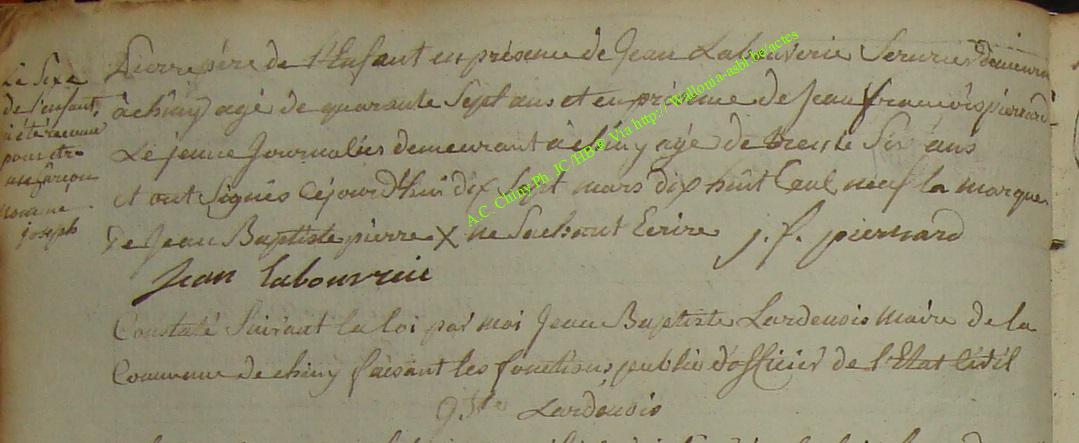 Le Sexe
de l'enfant,
a été reconnu
pour etre
un garçon
nommé
joseph
Pierre père de l'Enfant en présence de Jean Labouverie Serurier demeurant
à chiny agé de quarante Sept ans et en présence de Jean françois pierrard
Le jeune Journalier demeurant à chiny agé de trente Six ans
et ont Signés cejourd'huit dix huit mars dix huit Cent neuf la marque
de Jean Baptiste pierre X ne Sachant Ecrire j. f. pierrard
Jean labouverie
Constaté Suivant la loi par moi Jean Baptiste Lardenois maire de la
Commune de chiny faisant les fonctions publics d'officier de l'Etat Civil
Lardenois
A.C. Chiny Ph. JC /HB ® Via http:// Wallonia-asbl.be/actes